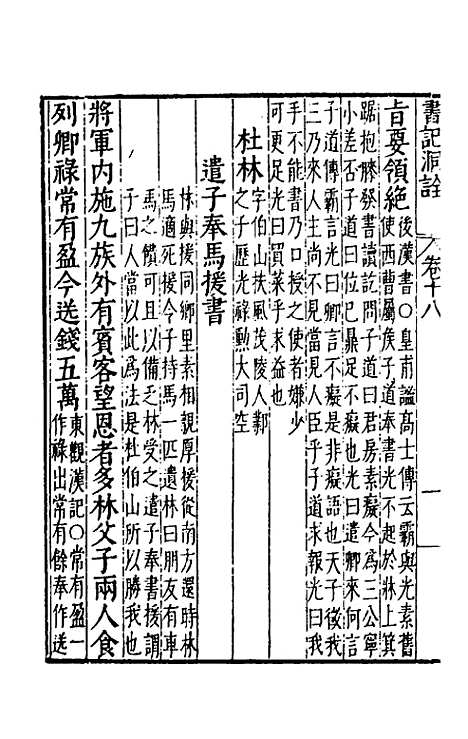 書記洞詮 卷十八 一
旨要領絶 後漢書○皇甫謐高士傳云霸與光素舊
使西曹屬侯子道奉書光不起於牀上箕
踞抱膝發書讀訖問子道曰君房素癡今為三公寧
小差否子道曰位已鼎足不癡也光曰遣卿來何言
子道傳霸言光曰卿言不癡是非癡語也天子徵我
三乃來人主尚不見當見人臣乎子道求報光曰我
手不能書乃口授之使者嫌少
可更足光曰買菜乎求益也
杜林 字伯山扶風茂陵人鄴
之子歷光祿勳大司空
遣子奉馬援書
林與援同鄉里素相親厚援從南方還時林
馬適死援令子持馬一匹遺林曰朋友有車
馬之饋可且以備乏林受之遣子奉書援謂
子曰人當以此為法是杜伯山所以勝我也
將軍內施九族外有賓客望恩者多林父子兩人食
列卿祿常有盈今送錢五萬 東觀漢記○常有盈一
作祿出常有餘奉作送